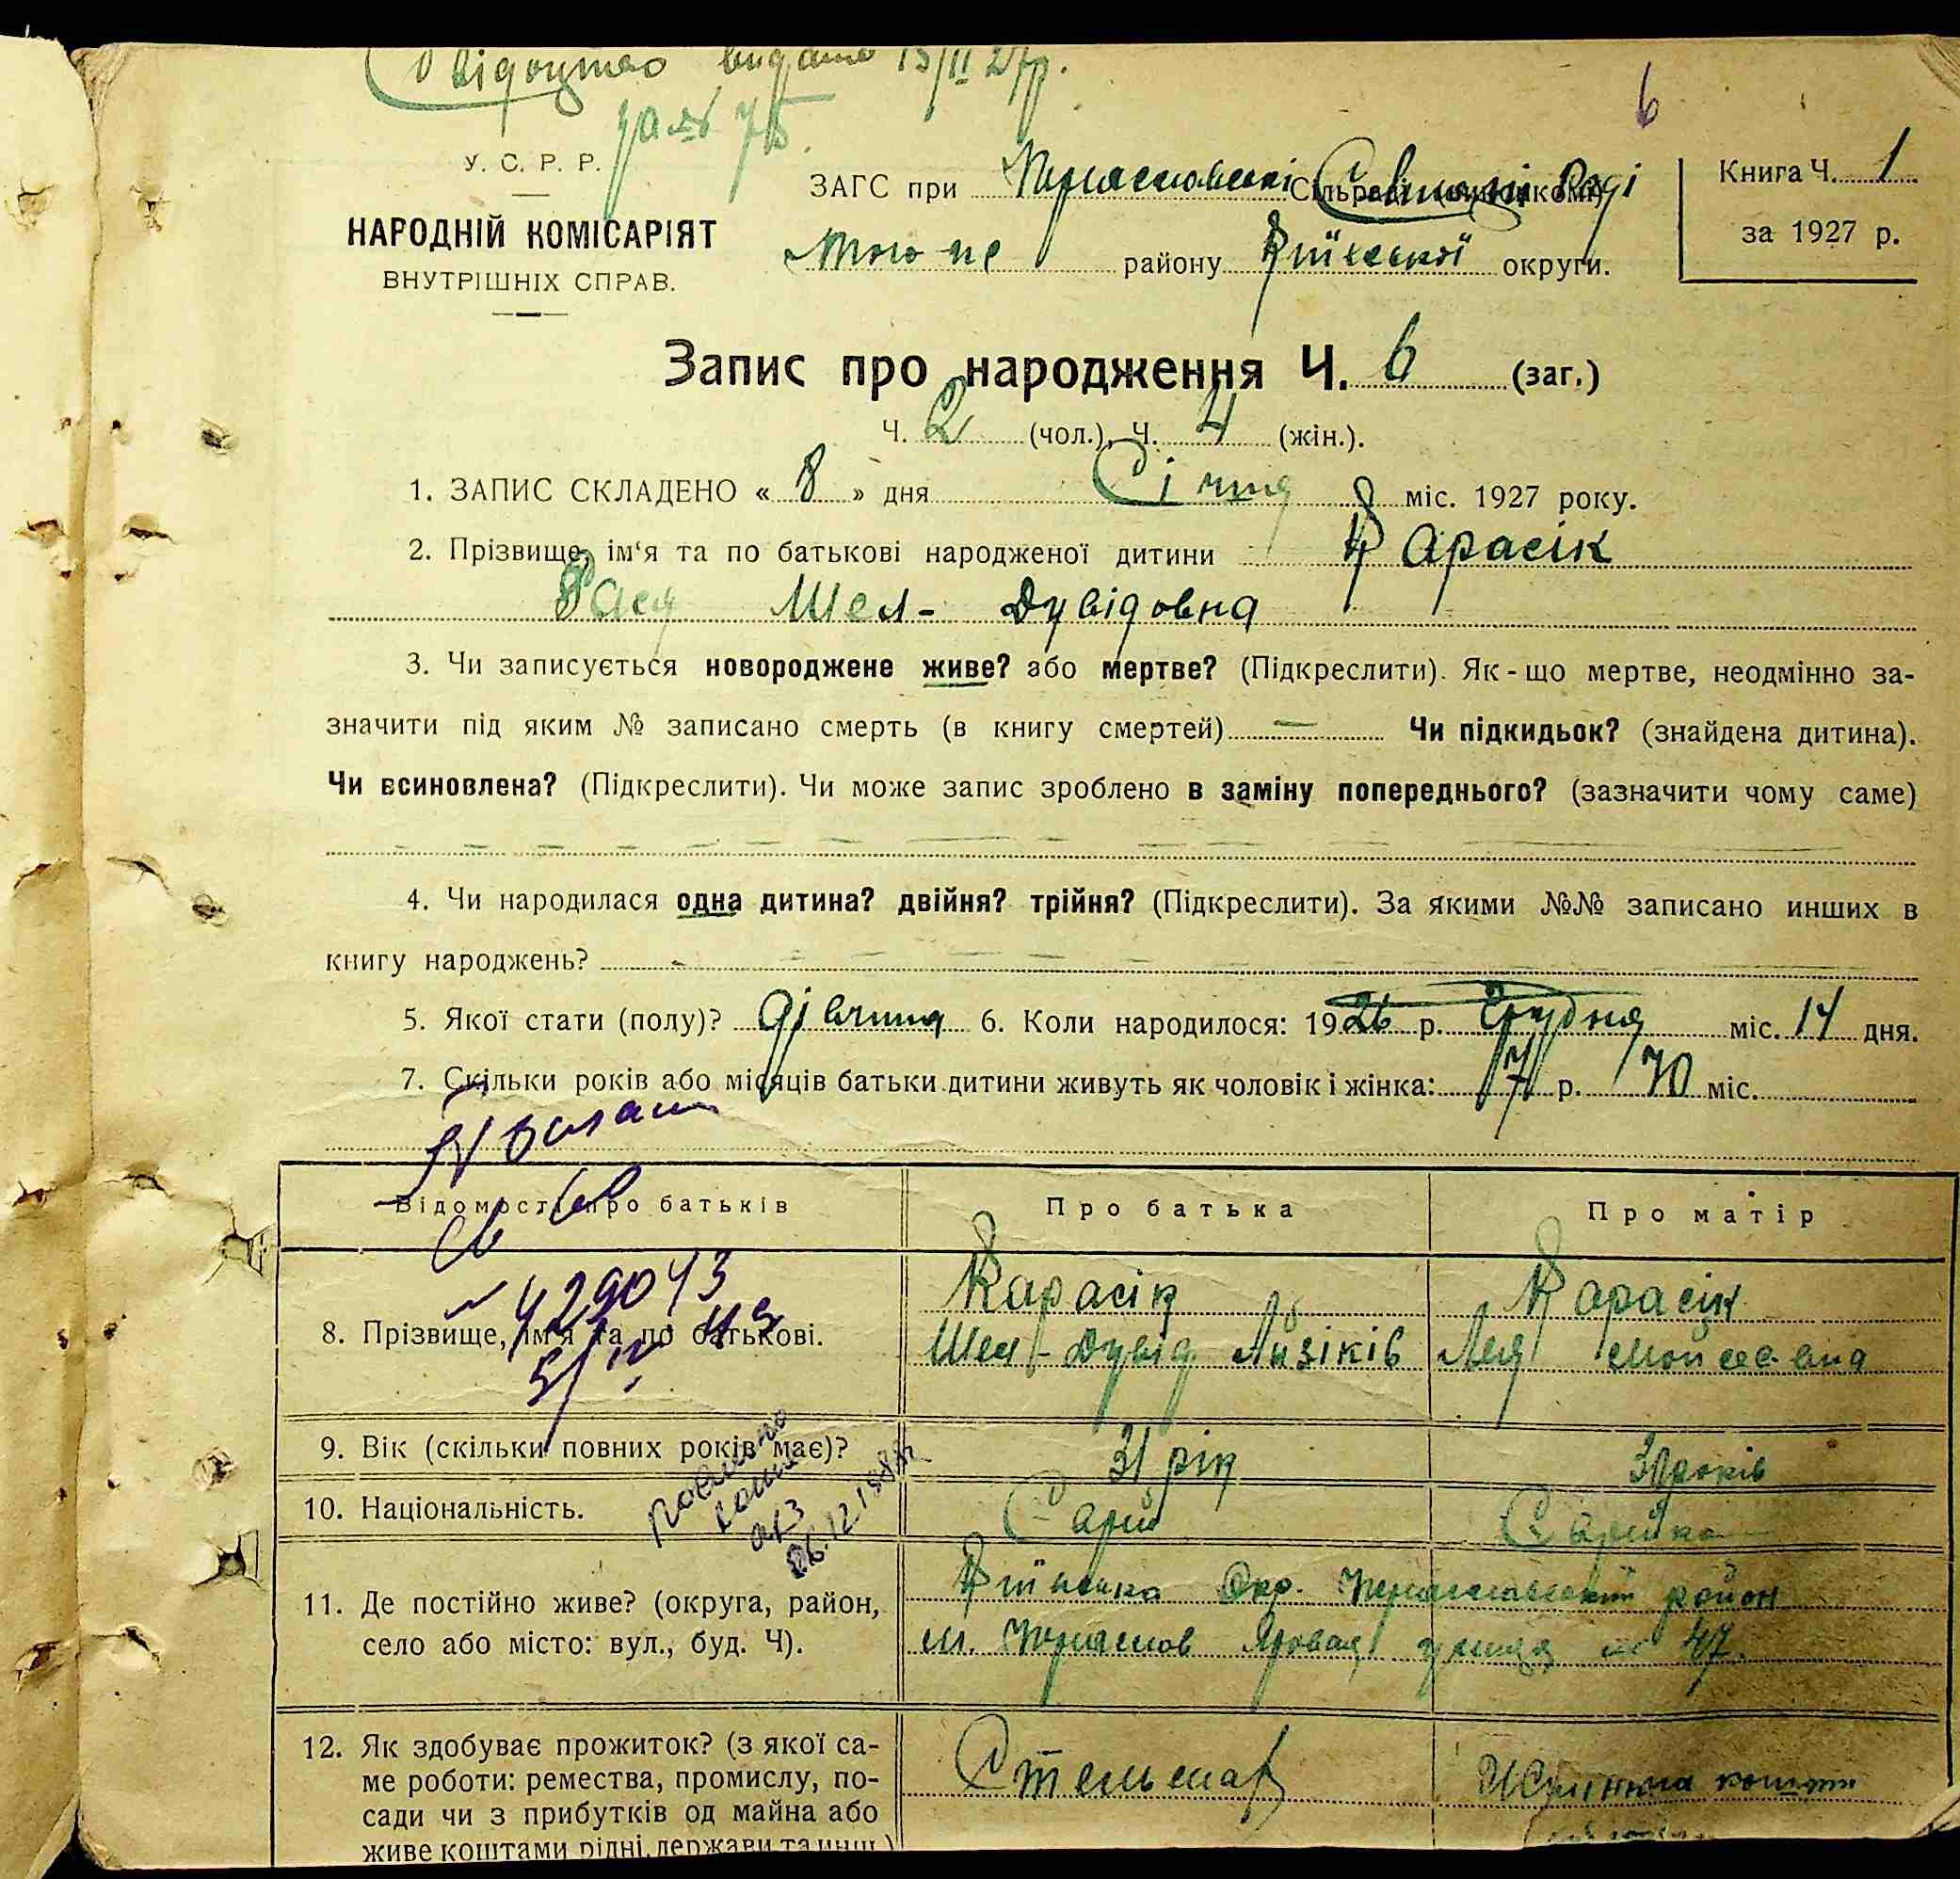 Свідоцтво видано 15/II 27р.
за № 75.
6
У. С. Р. Р.
НАРОДНІЙ КОМІСАРІЯТ
ВНУТРІШНІХ СПРАВ.
ЗАГС при Сільраді
того же району Київської округи.
Книга Ч. 1
за 1927 р.
Запис про народження Ч. 6 (заг.)
Ч. 2 (чол.), Ч. 4 (жін.).
1. ЗАПИС СКЛАДЕНО « 8 » дня Січня міс. 1927 року.
2. Прізвище, ім‘я та по батькові народженої дитини Карасік
Рася Шел- Дувідовна
3. Чи записується новороджене живе? або мертве? (Підкреслити). Як-що мертве, неодмінно за-
значити під яким № записано смерть (в книгу смертей) — Чи підкидьок? (знайдена дитина).
Чи всиновлена? (Підкреслити). Чи може запис зроблено в заміну попереднього? (зазначити чому саме)
4. Чи народилася одна дитина? двійня? трійня? (Підкреслити). За якими №№ записано инших в
книгу народжень?
5. Якої стати (полу)? дівчина 6. Коли народилося: 1926 р. Грудня міс. 14 дня.
7. Скільки років або місяців батьки дитини живуть як чоловік і жінка: р. 10 міс.
Відомості про батьків Про батька Про матір
8. Прізвище, ім'я та по батькові.
Карасік
Шел-Дувід Айзіків
Карасік
Лея Мойсеевна
9. Вік (скільки повних років має)? 31 рік років
10. Національність. Єврей Єврейка
11. Де постійно живе? (округа, район,
село або місто: вул., буд. Ч).
Київська Окр. район
м. Яровая улиця № 47.
12. Як здобуває прожиток? (з якої са-
ме роботи: ремества, промислу, по-
сади чи з прибутків од майна або
живе коштами рідні, держави та инш.)
Стельмах
кошти